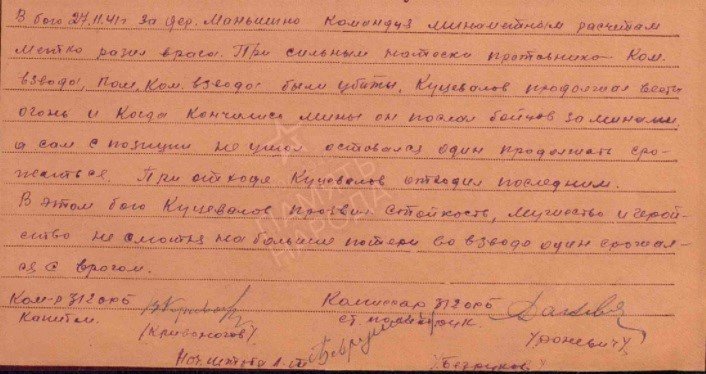 В бою 27.11.41г за дер. Маньшино командуя минометным расчетам
метко разил врага. При сильным натоски протовника Ком.
взвода, пом. ком. взвода были убиты, Куцевалов продолжал вести
огонь и когда кончились мины он послал бойцов за минами,
а сам с позиции не ушол оставался один продолжать сра-
жаться. При отходе Куцевалов отходил последним.
В этом бою Куцевалов проявил стойкость, мужество и герой-
ство не смотря на большие потери во взводе один сражал-
ся с врагом.
Ком-р 312 орб
Комиссар 312 орб
Капитан
ст. политрук
(Кривоногов)
Нач. штаба
ПАМЯТЬ
НАРОДА